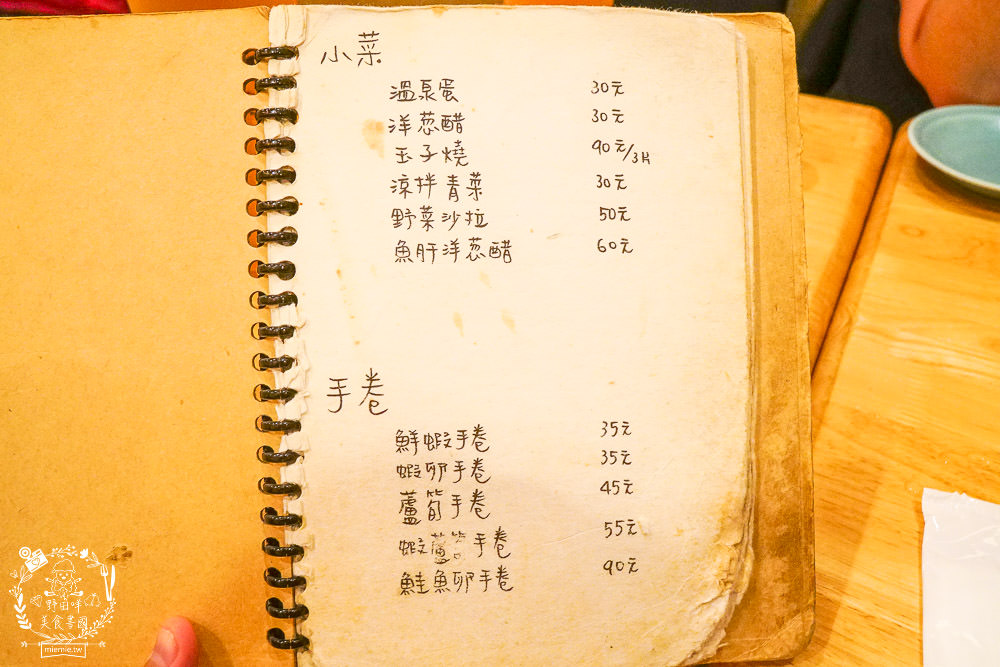 小菜
溫泉蛋 30元
洋蔥醋 30元
玉子燒 90元/3片
涼拌青菜 30元
野菜沙拉 50元
魚肝洋蔥醋 60元
手卷
鮮蝦手卷 35元
蝦卵手卷 35元
蘆筍手卷 45元
蝦蘆筍手卷 55元
鮭魚卵手卷 90元
美食樂園
miemie.tw